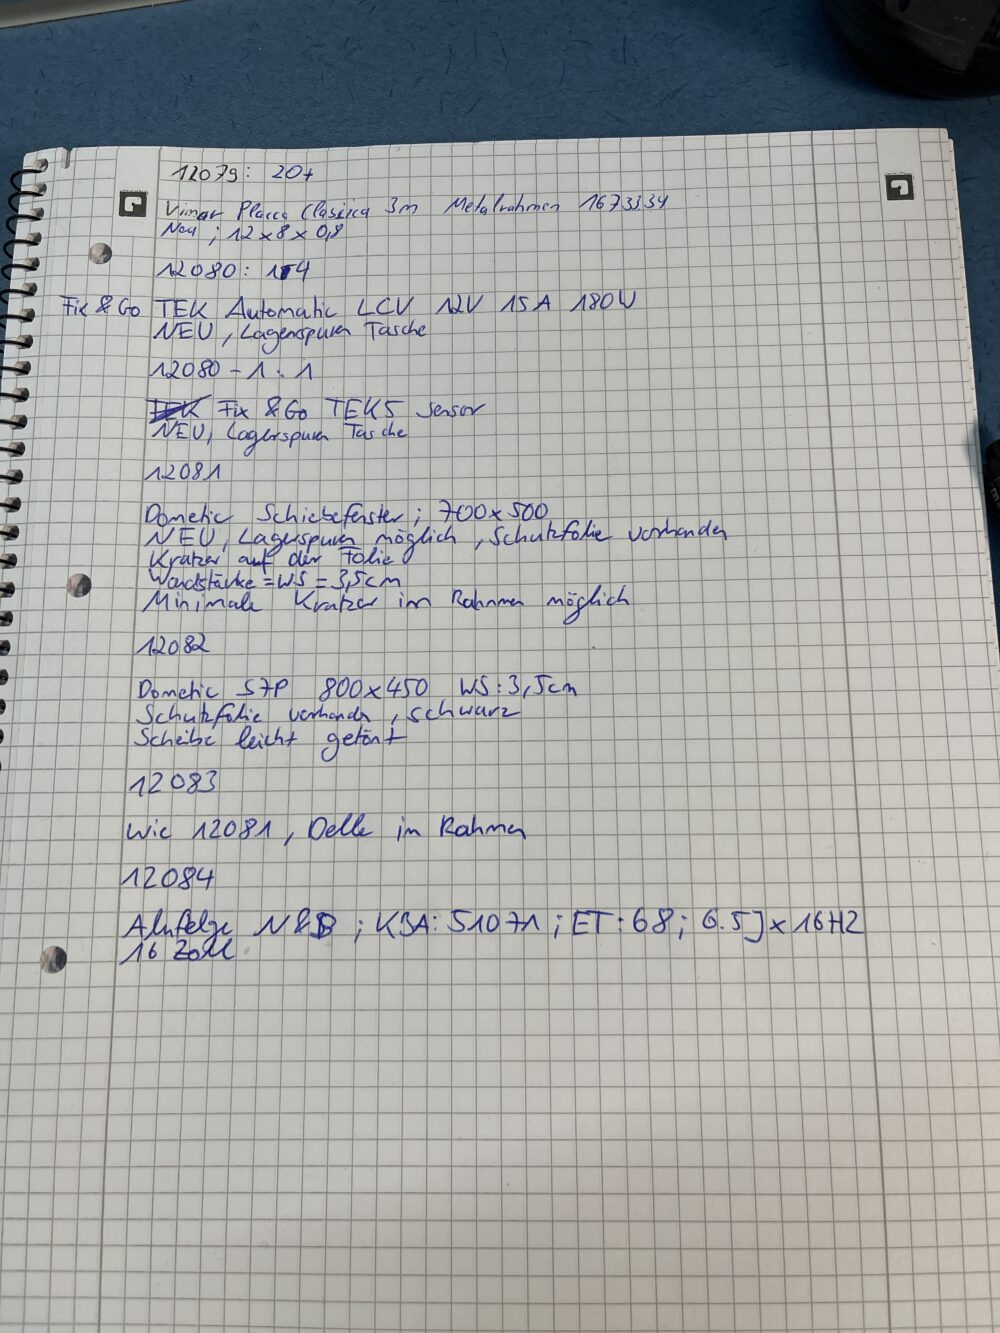 12079: 20+
Vimar Placca Classica 3m Metalrahmen
Neu ; 12 x 8 x 0,8
12080: 4
Fix & Go TEK Automatic LCV 12V 15A 180W
NEU, Lagerspuren Tasche
12080 - 1 : 1
Fix & Go TEK5 Sensor
NEU, Lagerspuren Tasche
12081
Dometic Schiebefenster ; 700x500
NEU, Lagerspuren möglich, Schutzfolie vorhanden
Kratzer auf der Folie
Wandstärke = WS = 3,5cm
Minimale Kratzer im Rahmen möglich
12082
Dometic S7P 800x450 WS: 3,5cm
Schutzfolie vorhanden, schwarz
Scheibe leicht getönt
12083
Wie 12081, Delle im Rahmen
12084
Alufelge ; KBA: 51071 ; ET: 68 ; 6.5J x 16H2
16 Zoll